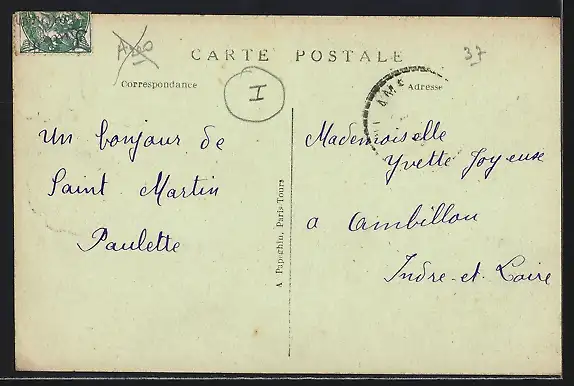 CARTE POSTALE
37
Correspondance
Adresse
I
Un bonjour de
Saint Martin
Paulette
A Papeghin, Paris-Tours
Mademoiselle
Yvette Joyeuse
a Ambillou
Indre-et-Loire